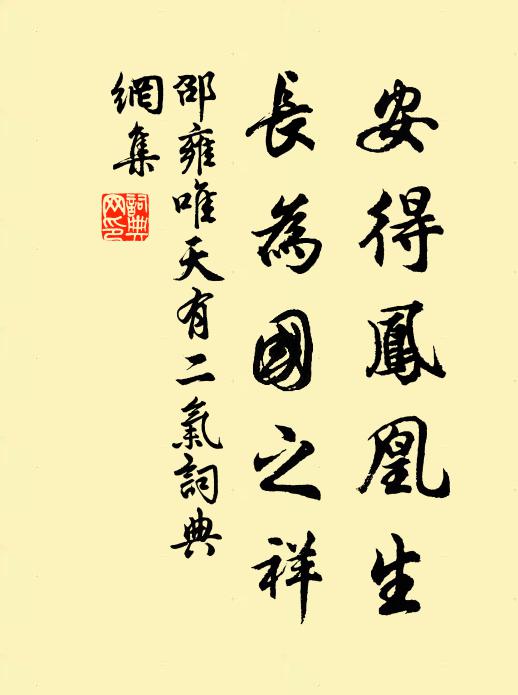 安得鳳凰生
長為國之祥
邵雍唯天有二氣詞典
網集
詞典
网印